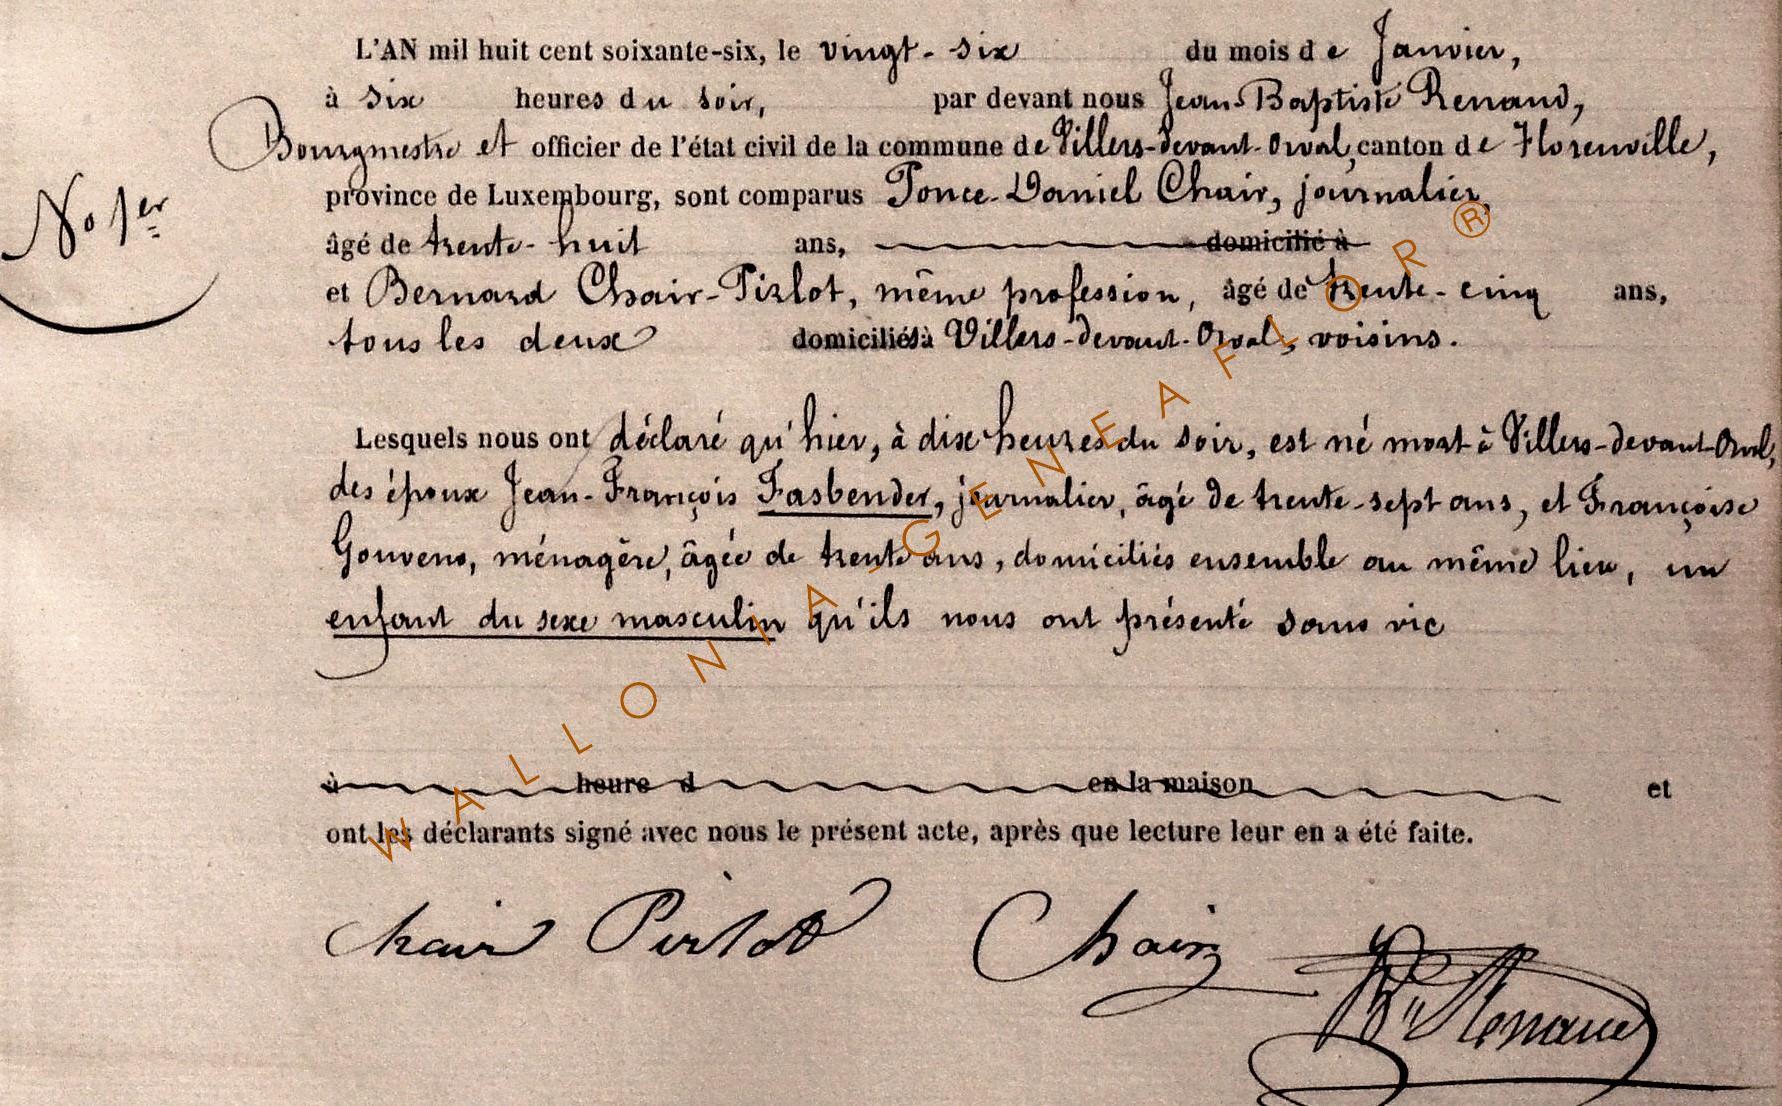 L'AN mil huit cent soixante-six, le vingt-six du mois de Janvier,
à six heures du soir, par devant nous Jean-Baptiste Renaud,
Bourgmestre et officier de l'état civil de la commune de Villers-devant-Orval, canton de Florenville,
No 1er
province de Luxembourg, sont comparus Ponce-Daniel Chair, journalier,
âgé de trente-huit ans, domicilié à
et Bernard Chair-Pirlot, même profession, âgé de trente-cinq ans,
tous les deux domiciliés à Villers-devant-Orval, voisins.
Lesquels nous ont déclaré qu'hier, à dix heures du soir, est né mort à Villers-devant-Orval,
des époux Jean-François Fasbender, journalier, âgé de trente-sept ans, et Françoise
Gouvens, ménagère, âgée de trente ans, domiciliés ensemble au même lieu, un
enfant du sexe masculin qu'ils nous ont présenté sans vie
à heure d en la maison et
ont les déclarants signé avec nous le présent acte, après que lecture leur en a été faite.
Chair Pirlot Chair
Renaud
WALLONIA-GENEAFLOR®